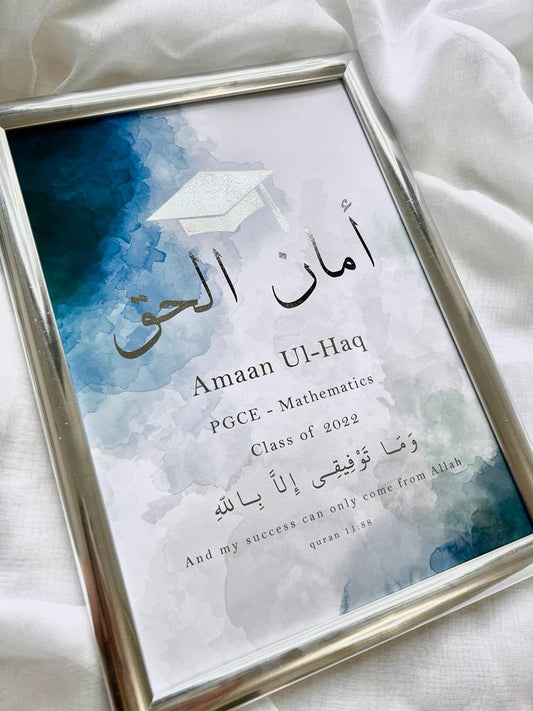 أمان الحق
Amaan Ul-Haq
PGCE - Mathematics
Class of 2022
وَمَا تَوْفِيقِى إِلاَّ بِاللهِ
And my success can only come from Allah
quran 11:88